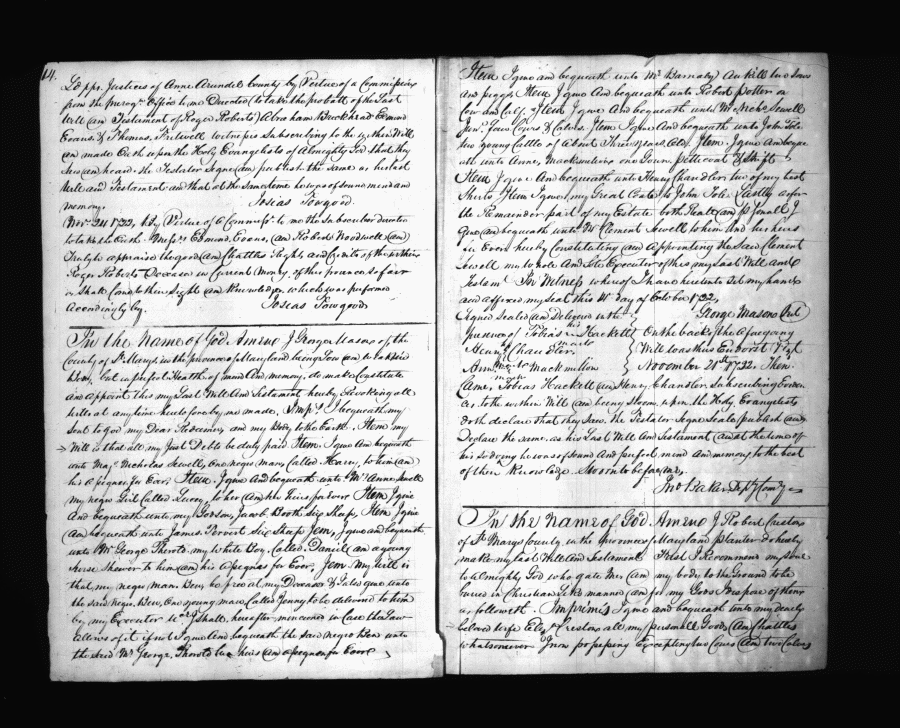 14.
Lo ppr. Justices of Anne Arundel County by Vertue of a Commission
from the Prerogve. Office to me Directed to take the probatt of the Last
Will and Testament of Roger Roberts Abraham Edmond
Evans, & Thomas Witnesses Subscribing to the within Will
an made Oath upon the Holy Evangelists of Almighty God that they
saw and heard the Testator Signe an publish the same as his last
Will and Testament and that at the same time he was of sound mind and
memory. Josias Towgood.
Novr. 24 1732, by Vertue of a Commission to me the Subscriber directed
to Messrs Edmond Evans, and Robert Woodwell an
Truly to appraise the good and Chattles Rights and Credits of the within
Roger Roberts Deceased in Current Mony of this province so far
as Shall Come to their Sight an Knowledge, which was performed
accordingly by. Josias Towgood
In the Name of God Amen I George Mason of the
County of St. Marys in the province of Maryland being Low in
Body, but in perfect Health of mind And Memory, do make Constitute
and Appoint this my Last Will And Testament hereby Revoking all
wills at any time heretofore by me made. Imps. I bequeath my
soul to god my Dear Redeemer, and my Body to the Earth. Item my
Will is that all my Just Debts be duly paid Item. I give And bequeath
unto Majr. Nicholas Sewell, one negro man Called Harry, to him an
his Assignes for Ever. Item I give And bequeath unto Mrs. Anne Sewell
my negro Girl Called Lucey, to her an her heirs for Ever Item I give
And bequeath unto my Godson, Jacob Booth Six Sheep, Item I give
an bequeath unto James Six Sheep Item, I give and bequeath
unto Mr. George Thorold my White Boy, Called Daniell an a young
horse to him an his Assignes for Ever, Item my Will is
that my negro man Ben, be free at my Decease & I also give unto
the said Negro Ben, One young mare Called Jenny to be delivered to him
by my Executor I shall hereafter mentioned in Case the Law
allows of it if not I give and bequeath the said negro Ben unto
the said Mr. George Thorold his Heirs an Assignes for Ever
Item I give and bequeath unto Mr. Barnaby two Sows
and piggs Item I give And bequeath unto Robert Potter on
Cow and Calf. Item I give And bequeath unto Mr. Nichs. Sewell
Junr. Cows & Calves. Item I give And bequeath unto John Tole
two young Cattle of about Three years old, Item I give An beque
ath unto Anne, Mackmillion one Gown petticoat & Shift
Item I give And bequeath unto Henry Chandler two of my best
Shirts Item I give my Great Coate to John Tole Lastly as for
the Remainder part of my Estate both Reall and Psonall I
give and bequeath unto Mr. Clement Sewell to him and his heirs
for Ever hereby Constituting and Appointing the Said Clement
Sewell my whole And Sole Executor of this my last Will and
Testamt. In Witness whereof I have hereunto set my hand
and affixed my Seal this 10th Day of October 1732,
Signed Sealed and Delivered in the George Mason Seal
presence of Tobias his Hackett
Henry Chandler
Ann her marke Mackmillion
On the back of the aforegoing
Will was thus Endorst Vizt
November 21st 1732. Then
Came, Tobias Hackett an Henry Chandler Subscribing Eviden
ces, to the within Will an being Sworn, upon the Holy Evangelists
doth declare that they Saw the Testator Signe Seale publish and
Declare the same, as his Last Will And Testament and at the time of
his so doing he was of Sound And perfect mind and memory to the best
of their Knowledge. Sworn to before me,
Jno. Baker Depty Comry
In the Name of God Amen I Robert
of St. Marys County, in the province of Maryland planter do hereby
make my last Will And Testament First I Recommend my Soul
to Almighty God who gave Me, an my body to the Ground to be
buried in Christian Like manner, an for my Goods I dispose of them
as followeth. Imprimis I give and bequeath unto my dearly
beloved wife all my personall Goods And Chattles
whatsoever I now possessing Excepting two Cows And two Calves